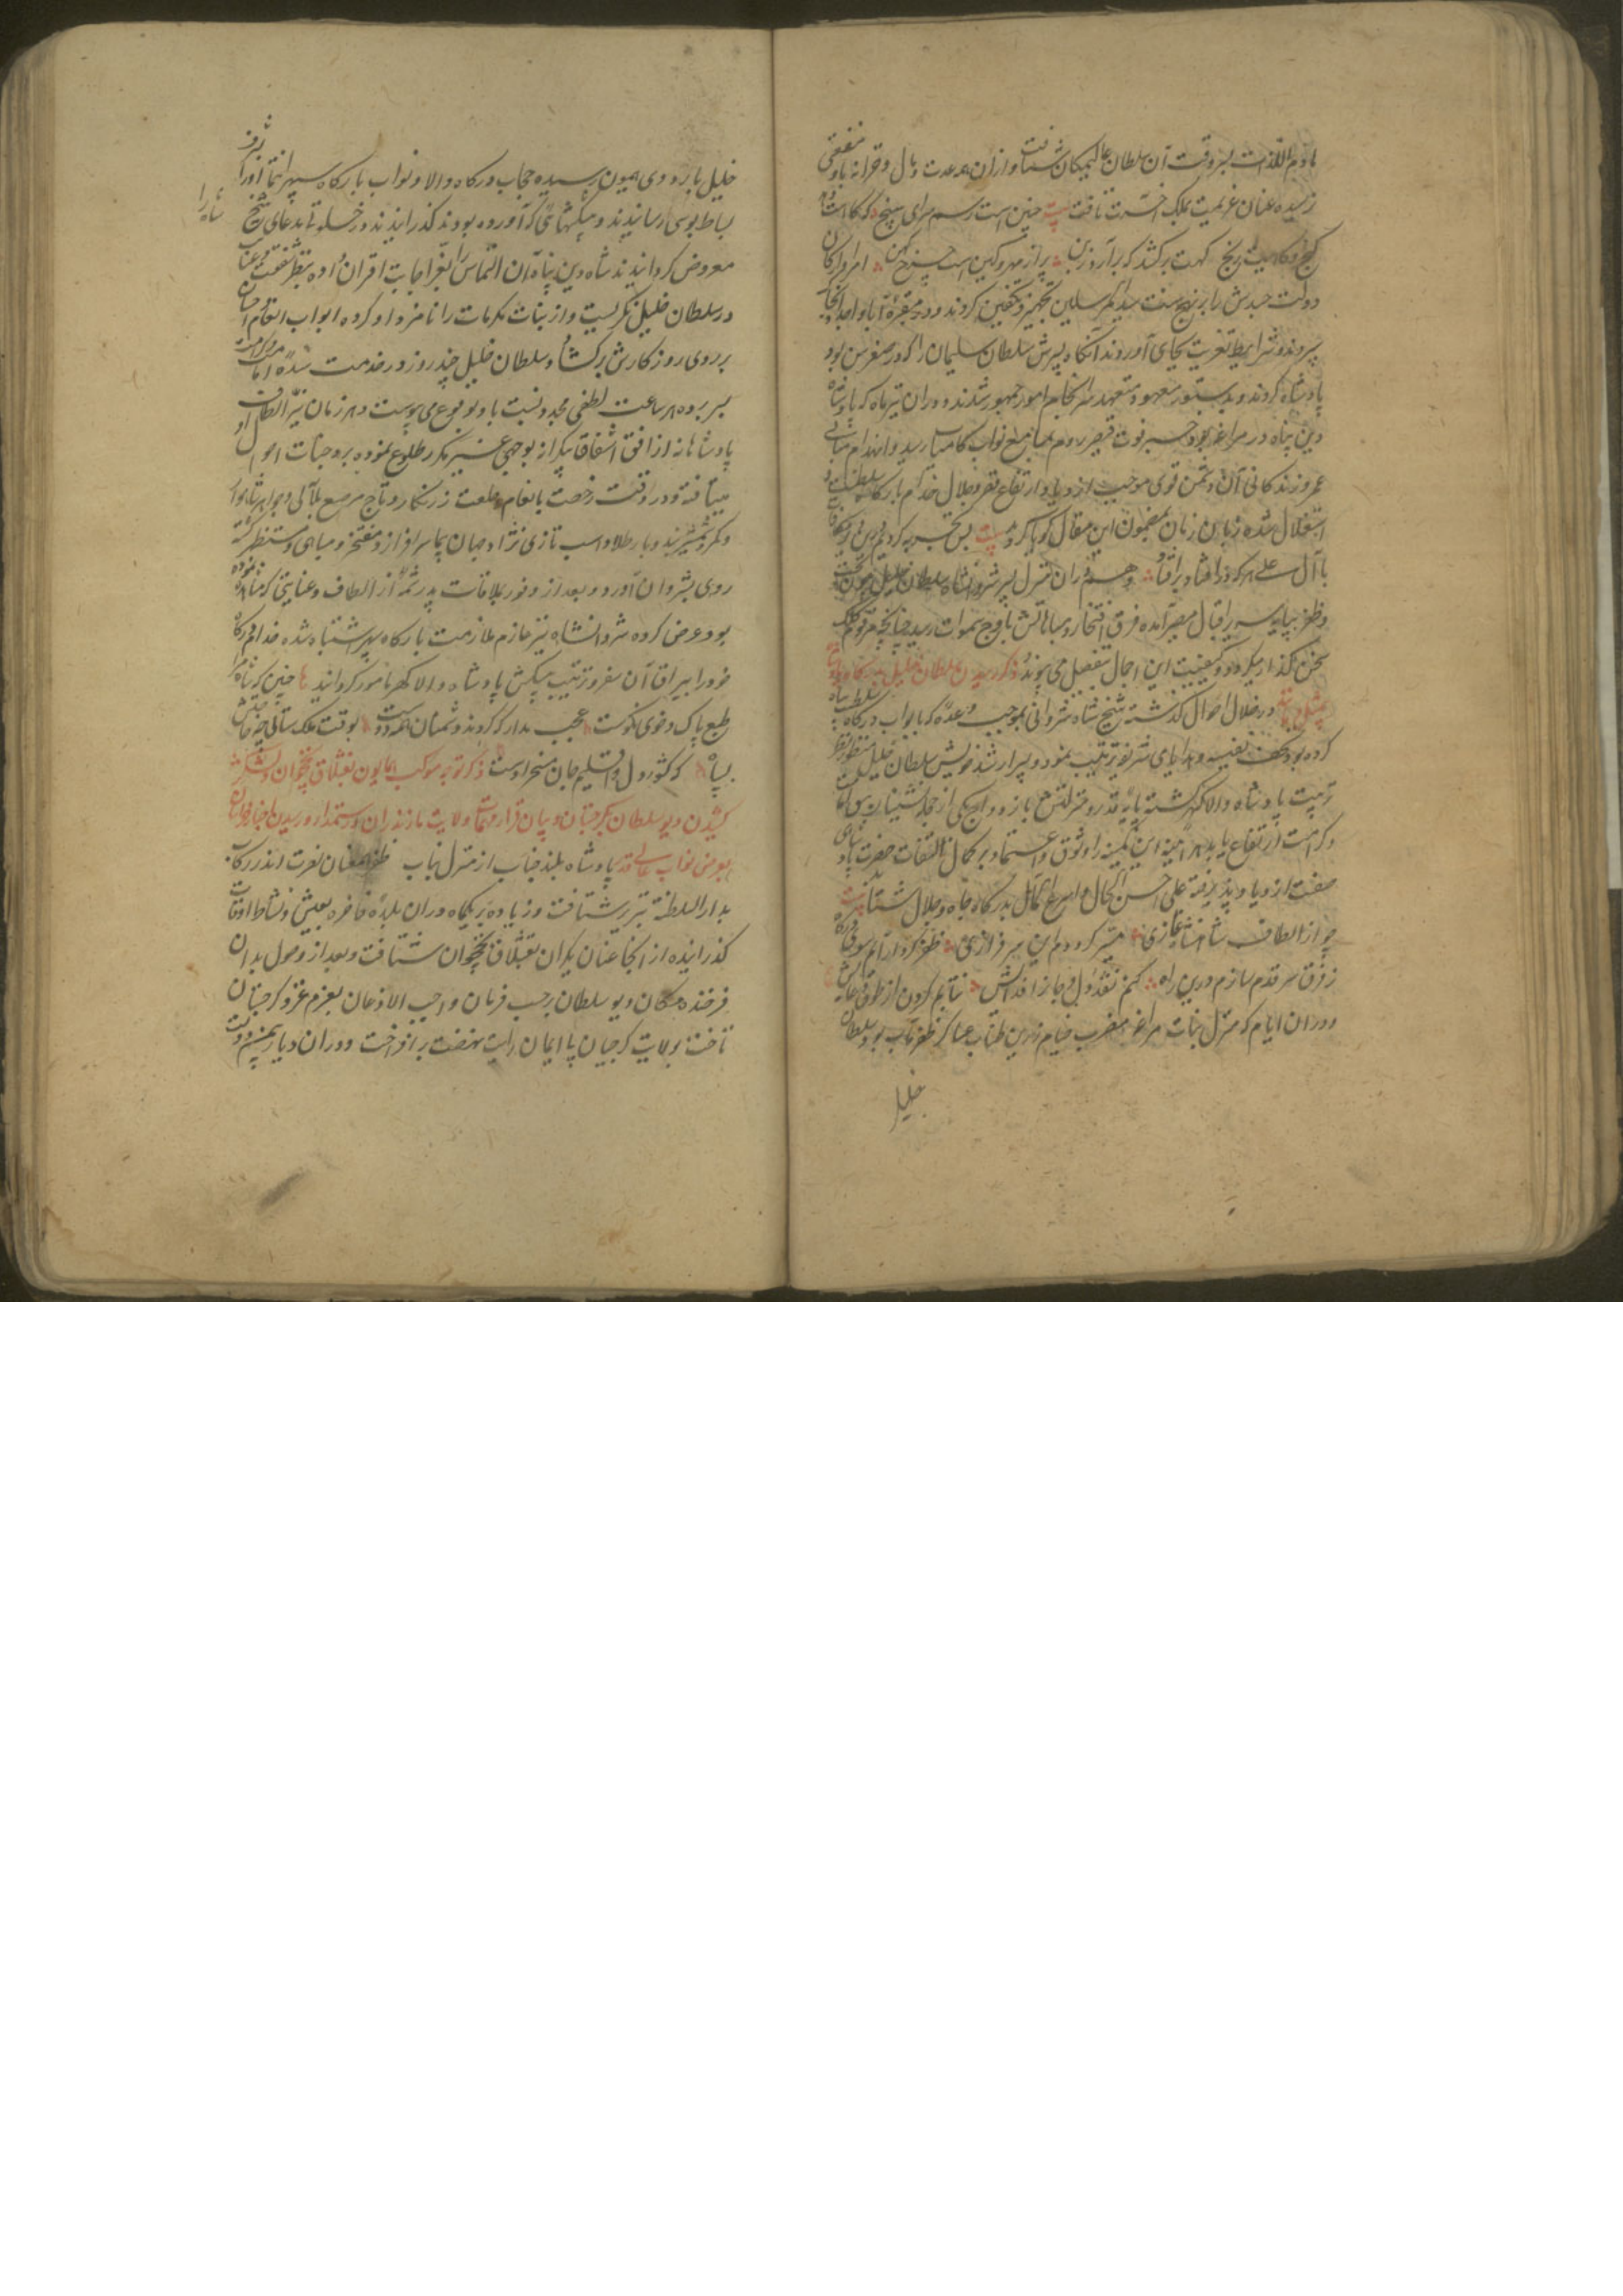 هادم اللذات بسر وقت آن سلطان عالیمکان شتافت و از آن همه عدت و مال و خزانه باو منفعتی
نرسیده عنان عزیمت بملک آخرت تافت بیت چنین است رسم سرای سپنج که گاه است
گنج و گاهیست رنج گهت برکشد که برآرد زبن پر از مهر و کین است چرخ کهن امرا و ارکان
دولت جسدش را بر نهج سنت سید المرسلین تجهیز و تکفین کردند و در مقبره آبا و اجداد بخاک
سپردند و شرایط تعزیت بجای آوردند آنگاه پسرش سلطان سلیمان را که در صغر سن بود
پادشاه کردند و بدستور معهود متعهد سرانجام امور جمهور شدند و در آن تیرماه که پادشاه
دین پناه در مراغه بود خبر فوت قیصر روم بمسامع نواب کامیاب رسید و انهدام مبانی
عمر و زندگانی آن دشمن قوی موجب ازدیاد ارتفاع قصر جلال خدام بارگاه سلطنت و
استقلال شده زبان زمان بمضمون این مقال گویا گردید بیت بس تجربه کردیم درین دیر مکافات
با آل علی هر که درافتاد برافتاد و هم در آن منزل پسر شروانشاه سلطان خلیل بعون بخت
و ظفر بپایه سریر اقبال مصیر آمده فرق افتخار و مباهاتش باوج سموات رسید چنانچه مرقوم کلک
سخن گذار میگردد و کیفیت این اجمال بتفصیل می پیوندد ذکر رسیدن سلطان خلیل بدرگاه پادشاه
در خلال احوال گذشته شیخ شاه شروانی بموجب وعده که با نواب درگاه سلطنت پناه
کرده بود تحف نفیسه و هدایای شریفه ترتیب نمود و پسر ارشد خویش سلطان خلیل منظور نظر
تربیت پادشاه والاگهر گشته پایه قدر و منزلتش بازدواج یکی از حجله نشینان سرادقات
و کرامت ارتفاع یابد هر آینه این کمینه را وثوق و اعتماد بر کمال التفات حضرت پادشاهی
صفت ازدیاد پذیرفته علی احسن الحال و اسرع الآمال بدرگاه جاه و جلال شتابد بیت
چو از الطاف شاهنشاه غازی میسر گرددم این سرفرازی ظفر کردار آیم سوی درگاه
ز فرق سر قدم سازم درین راه کنم نقد دل و جانرا فدایش نتابم گردن از طوق رضایش
و در آن ایام که منزل جنات مراغه مضرب خیام زرین طناب عساکر ظفر مآب بود سلطان
خلیل
خلیل باردوی همیون رسیده حجاب درگاه والا و نواب بارگاه سپهر انتما او را بشرف
بساط بوسی رسانیدند و پیشکشهائی که آورده بودند گذرانیدند و در خلوتی مدعای شیخ شاه را
معروض گردانیدند شاه دین پناه آن التماس را بعز اجابت اقتران داده بنظر شفقت و عنایت
در سلطان خلیل نگریست و از بنات مکرمات را نامزد او کرده ابواب انعام و احسان
بر روی روزگارش برگشاد و سلطان خلیل چند روز در خدمت سده امامت مرتبت
بسر برده هر ساعت لطفی مجدد نسبت باو بوقوع می پیوست و هر زمان نیر الطاف
پادشاهانه از افق اشفاق بیکرانه بوجهی غیر مکرر طلوع نموده بر وجنات احوال او
میتافت و در وقت رخصت بانعام خلعت زرنگار و تاج مرصع بلآلی و جواهر شاهوار
و کمر شمشیر بند و بار طلا و اسب تازی نژاد جهان پیما سرافراز و مفتخر و مباهی و مستظهر گشته
روی بشروان آورد و بعد از وفور ملاقات پدر شمه از الطاف و عنایتی که مشاهده نموده
بود عرض کرده شروانشاه نیز عازم ملازمت بارگاه سپهر اشتباه شده خدام درگاه
خود را بیراق آن سفر و ترتیب پیشکش پادشاه والاگهر مامور گردانید چنین که شاه را
طبع پاک و خوی نکوست عجب مدار که گردند دشمنان همه دوست بوقت ملک ستانی چه حاجتش
بسپاه که کشور دل و اقلیم جان مسخر اوست ذکر توجه موکب همایون بقشلاق نخجوان و لشکر
کشیدن دیو سلطان بگرجستان و بیان قرار مهمات ولایت مازندران و رستمدار و رسیدن اخبار خراسان
بعرض نواب عالیقدر پادشاه بلند جناب از منزل نهاب ظفر عنان نصرت اندر رکاب
بدار السلطنه تبریز شتافت و زیاده بر یکماه در آن بلده فاخره بعیش و نشاط اوقات
گذرانیده از آنجا عنان یکران بقشلاق نخجوان شتافت و بعد از وصول بدان
فرخنده مکان دیو سلطان برحسب فرمان واجب الاذعان بعزم غزو گرجستان
تاخت بولایت گرجیان بی ایمان رایت نهضت برافراخت و در آن دیار بیمن دولت